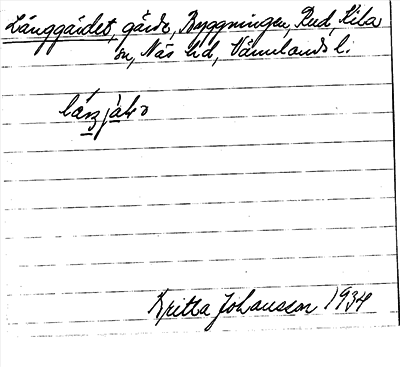 Långgärdet, gärde, Byggningen, Rud, Kila
sn, Näs hd, Värmlands l.
Kritta Johansson 1934